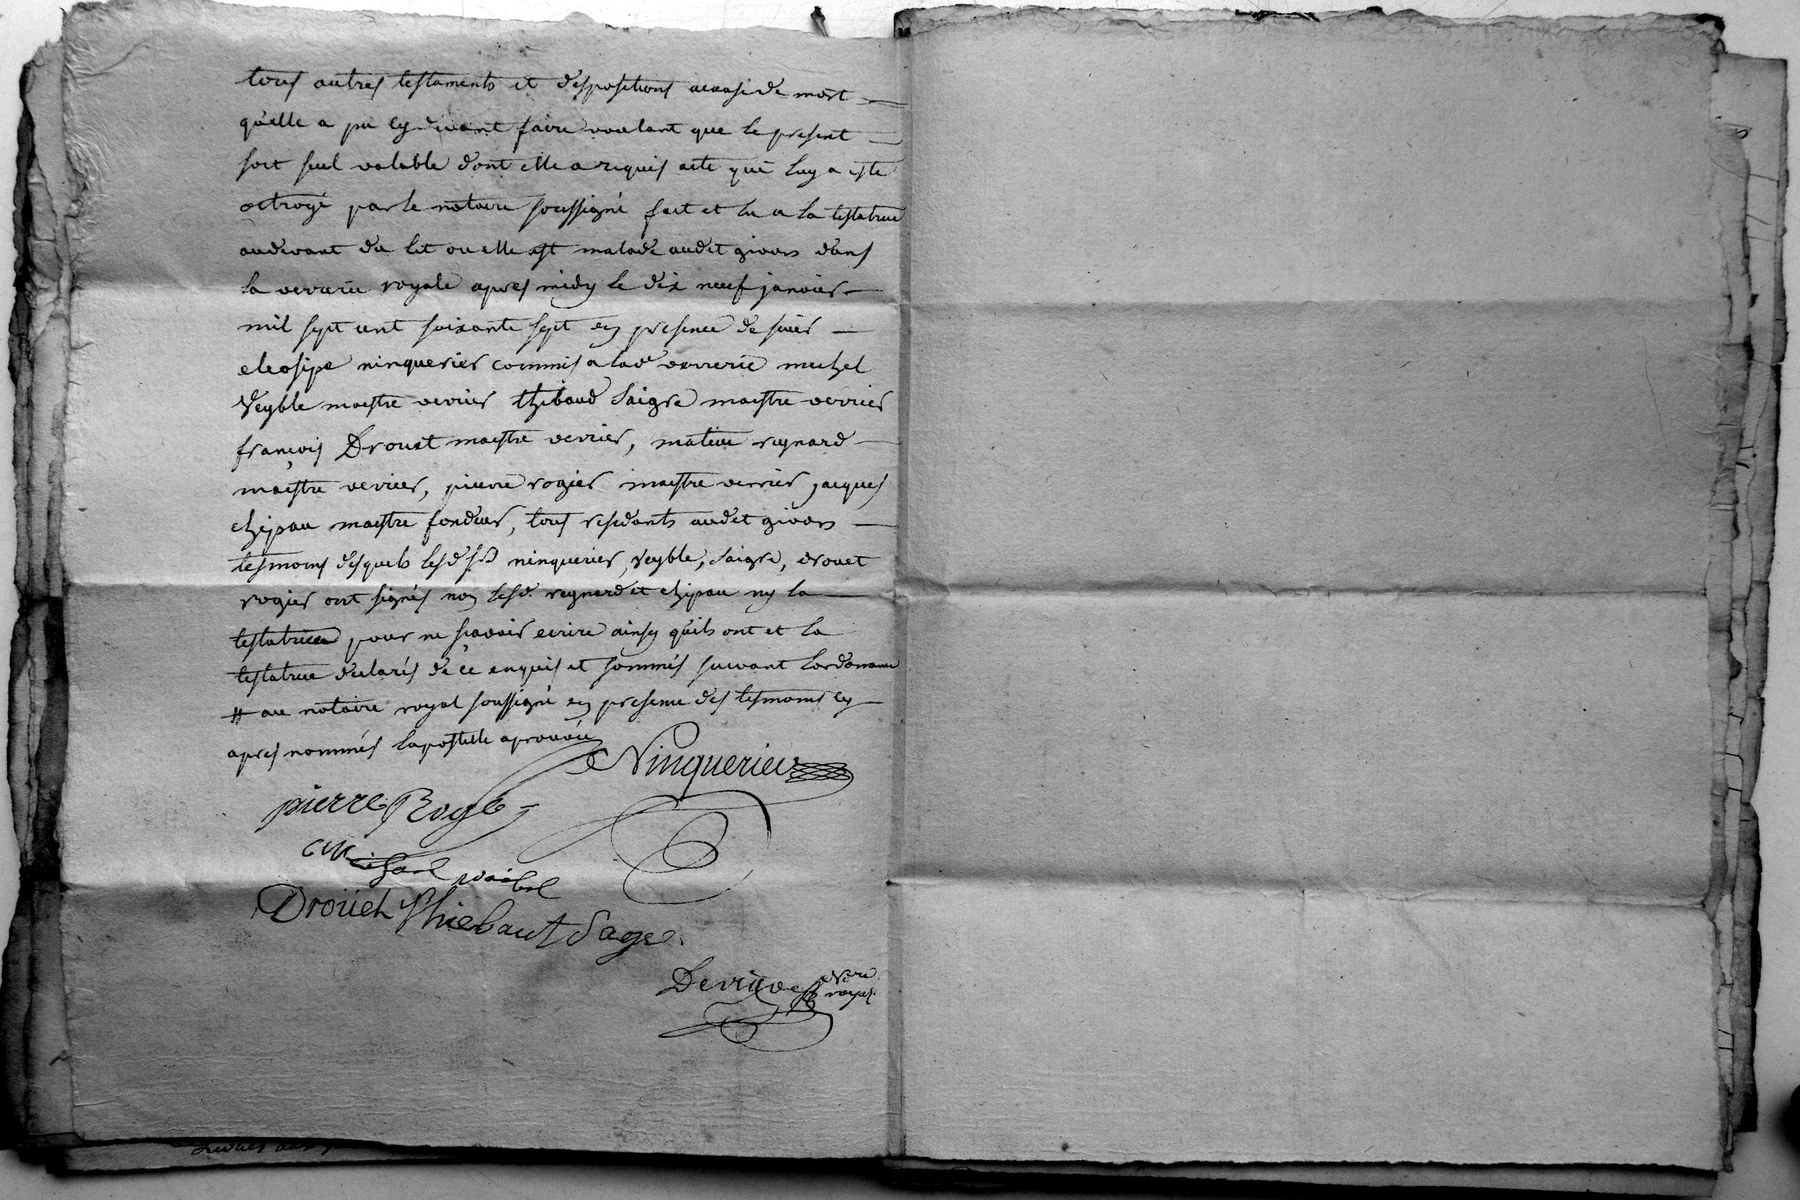 tous autres testaments et dispositions acause de mort
qu'elle a pu cy devant faire voulant que le present
soit seul valable dont elle a requis acte que luy a esté
octroyé par le notaire soussigné fait et lu a la testatrice
audevant du lit ou elle est malade audit givors dans
la verrerie royale apres midy le dix neuf janvier
mil sept cent soixante sept en presence de sieur
eleosipe ninquerier commis a lad^e verrerie michel
Veyble maestre verrier thibaud Saigre maestre verrier
françois Drouet maestre verrier, matieu reynard
maestre verrier, pierre rogier maestre verrier jacques
chipau maestre fondeur, tous residants audit givors
tesmoins desquels lesd srs ninquerier, veyble, Saigre, drouet
rogier ont signés non lesd. reynard et chipau ny la
testatrice pour ne sçavoir ecrire ainsy qu'ils ont et la
testatrice declarés de ce enquis et sommés suivant lordonnance
# au notaire royal soussigné en presence des tesmoins cy
apres nommés lapostille aprouvée
Ninquerier
pierre Roge
Michael
Drouet Thiebaut Sage
Derrive N^re
royal